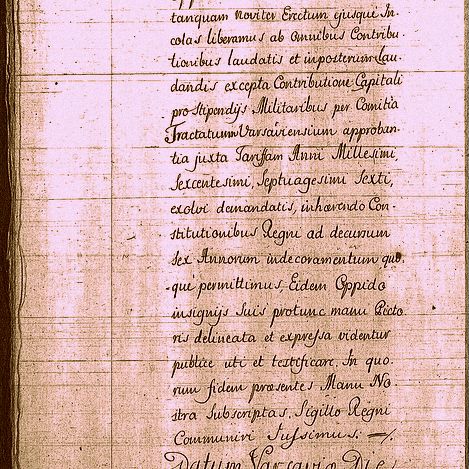 tanquam noviter Erectum ejusqui In-
colas liberamus ab omnibus Contribu
tionibus laudatis et inposterum Lau-
dandis excepta Contributione Capitali
pro Stipendijs Militaribus per Comitia
Tractatuum Varsaviensium approban-
tia juxta Tariffam Anni Millesimi
Sexcentesimi, Septuagesimi Sexti,
exolvi demandatis, inhærendo Con-
stitutionibus Regni ad decursum
sex Annorum indecoramentum quo
qui permittimus, Eidem Oppido
insignijs Suis protunc manu Picto
ris delineata et expressa videntur
publice uti et testificare. In quo-
rum fidem præsentes Manu No-
stra Subscriptas, Sigillo Regni
Communiri Jussimus.
Datum Varsavio Die